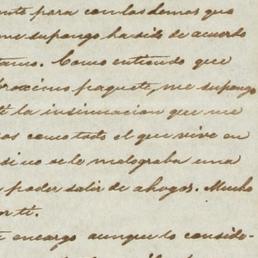 para con los demas que
me supongo, ha sido de acuerdo
Como entiendo que
proximo paquete, me supongo
la insinuacion que me
como todo el que vive en
si no se le malograba una
poder salir de ahogos. Mucho
por tí.
encargo aunque lo conside-